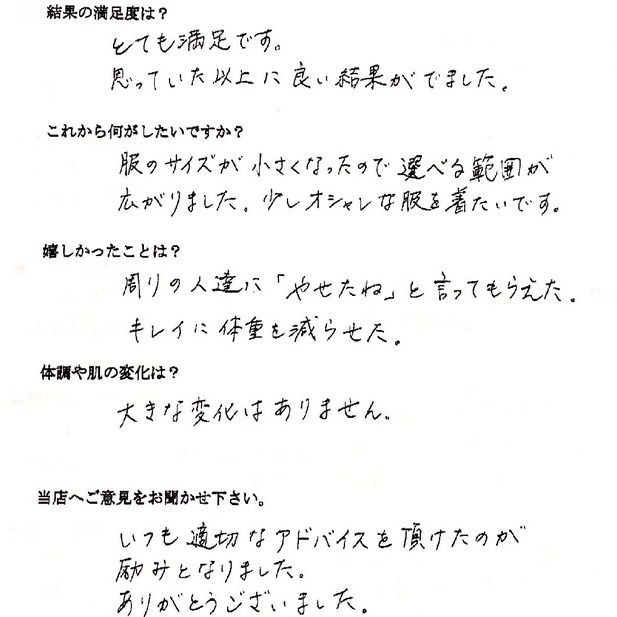 結果の満足度は？
とても満足です。
思っていた以上に良い結果がでました。
これから何がしたいですか？
服のサイズが小さくなったので選べる範囲が
広がりました。少しオシャレな服を着たいです。
嬉しかったことは？
周りの人達に「やせたね」と言ってもらえた。
キレイに体重を減らせた。
体調や肌の変化は？
大きな変化はありません。
当店へご意見をお聞かせ下さい。
いつも適切なアドバイスを頂けたのが
励みとなりました。
ありがとうございました。